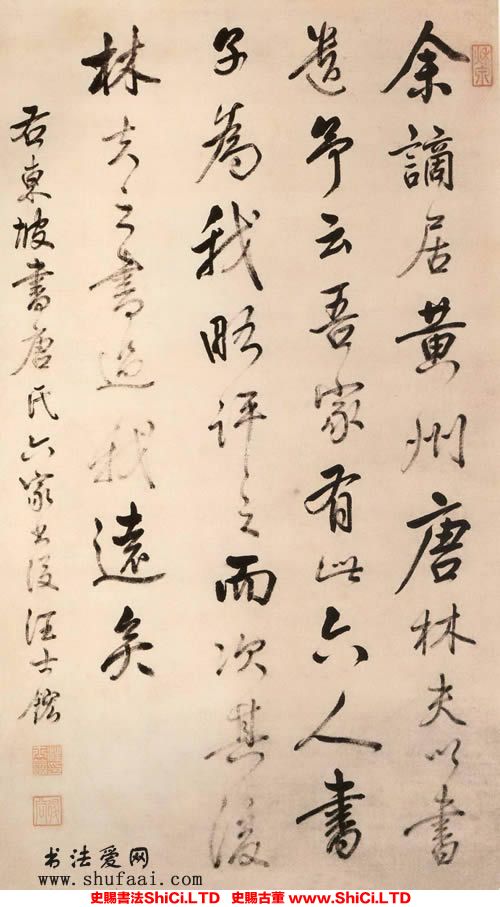 余謫居黄州唐林夫以書
遺予云吾家有此六人書
子為我略評之而次其後
林夫之書過我遠矣
右東坡書唐氏六家書後汪士鋐
书法爱网
www.shufaai.com
史賜書法ShiCi.LTD 史賜古董 www.ShiCi.LTD